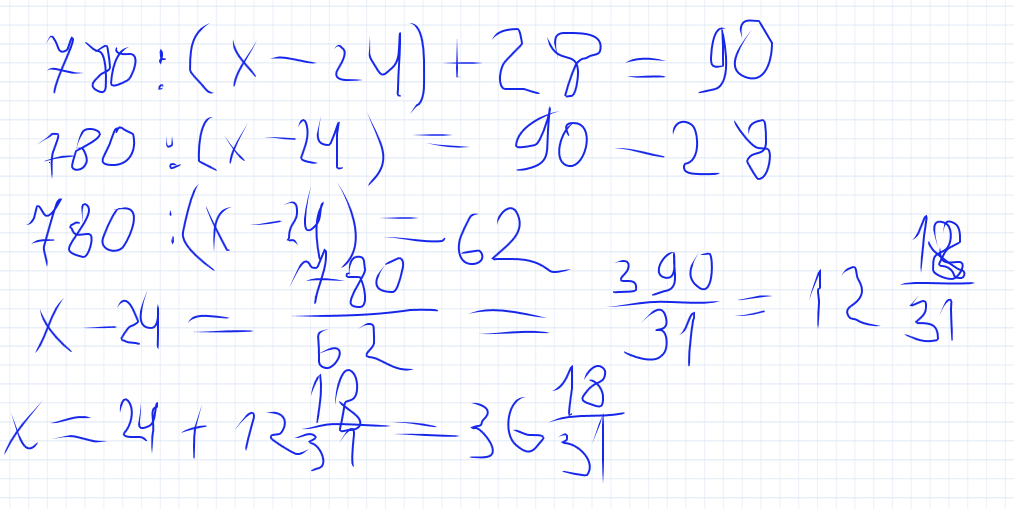 780 : (x - 24) + 28 = 90
780 : (x - 24) = 90 - 28
780 : (x - 24) = 62
x - 24 = 780/62 = 390/31 = 12 18/31
x = 24 + 12 18/31 = 36 18/31